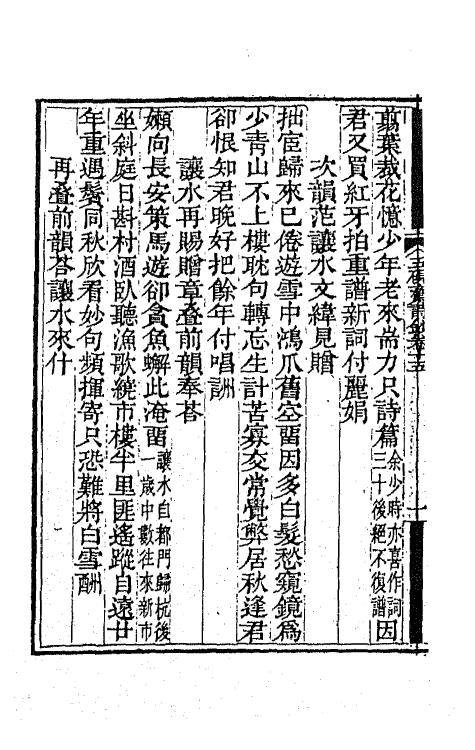 翦葉裁花憶少年老來耑力只詩篇余少時亦喜作詞三十後絕不復譜因
君又買紅牙拍重譜新詞付麗娟
次韻范讓水文緯見贈
拙宦歸來已倦遊雪中鴻爪舊空畱因多白髮愁窺鏡爲
少靑山不上樓耽句轉忘生計苦寡交常覺弊居秋逢君
卻恨知君晚好把餘年付唱酬
讓水再賜贈章叠前韻奉荅
嬾向長安策馬遊卻貪魚蠏此淹畱讓水自都門歸杭後一歲中數往來新市
坐斜庭日斟村酒臥聽漁歌繞市樓半里匪遙蹤自遠廿
年重遇鬢同秋欣看妙句頻揮寄只恐難將白雪酬
再叠前韻荅讓水來什